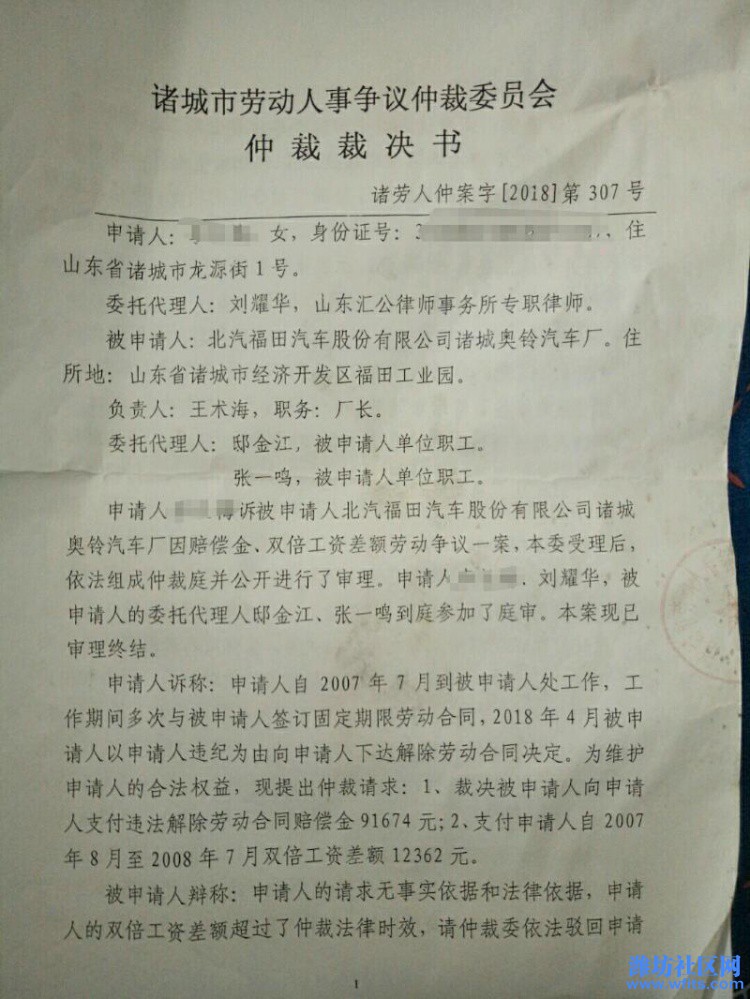 诸城市劳动人事争议仲裁委员会
仲裁裁决书
诸劳人仲案字[2018]第 307 号
申请人: 女，身份证号: 住
山东省诸城市龙源街1号。
委托代理人: 刘耀华，山东汇公律师事务所专职律师。
被申请人: 北汽福田汽车股份有限公司诸城奥铃汽车厂。住
所地: 山东省诸城市经济开发区福田工业园。
负责人: 王术海，职务: 厂长。
委托代理人: 邸金江，被申请人单位职工。
张一鸣，被申请人单位职工。
申请人 诉被申请人北汽福田汽车股份有限公司诸城
奥铃汽车厂因赔偿金、双倍工资差额劳动争议一案，本委受理后，
依法组成仲裁庭并公开进行了审理。申请人 . 刘耀华，被
申请人的委托代理人邸金江、张一鸣到庭参加了庭审。本案现已
审理终结。
申请人诉称: 申请人自 2007 年 7 月到被申请人处工作，工
作期间多次与被申请人签订固定期限劳动合同，2018 年 4 月被申
请人以申请人违纪为由向申请人下达解除劳动合同决定。为维护
申请人的合法权益，现提出仲裁请求: 1、裁决被申请人向申请
人支付违法解除劳动合同赔偿金 91674 元; 2、支付申请人自 2007
年 8 月至 2008 年 7 月双倍工资差额 12362 元。
被申请人辩称: 申请人的请求无事实依据和法律依据，申请
人的双倍工资差额超过了仲裁法律时效，请仲裁委依法驳回申请
1
潍坊社区网
www.wfits.com